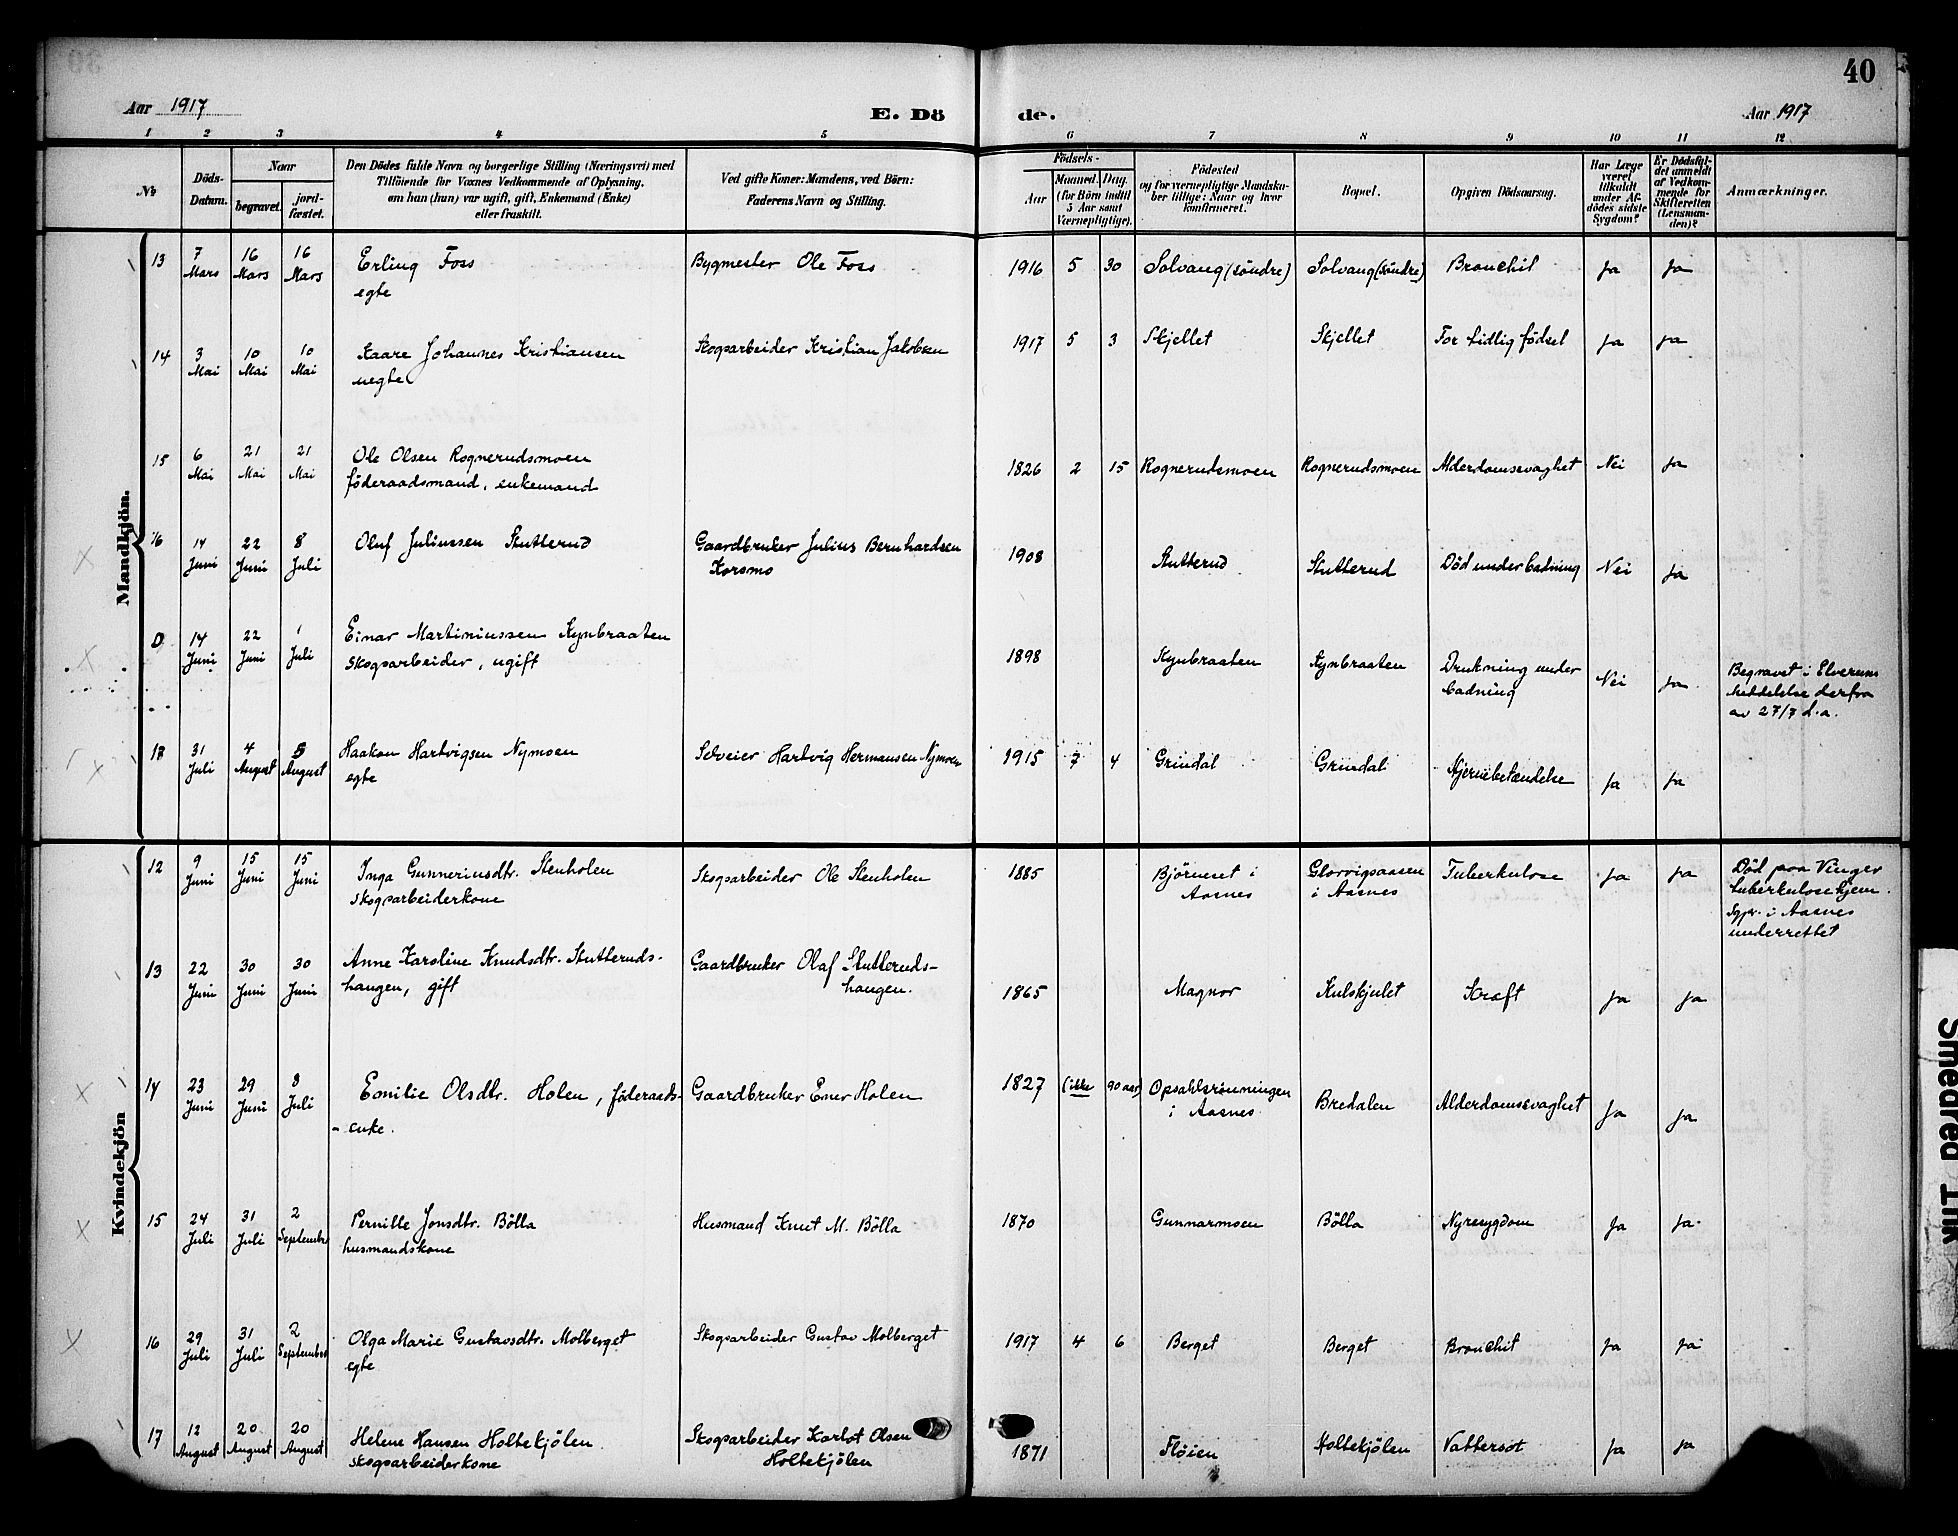 40
Aar 1917
E. Dö
de.
Aar 1917
1 2 3 4 5 6 7 8 9 10 11 12
No
Döds-
Datum.
Naar
begravet.
jord-
fæstet.
Den Dödes fulde Navn og borgerlige Stilling (Næringsvei) med
Tilföiende for Voxnes Vedkommende af Oplysning,
om han (hun) var ugift, gift, Enkemand (Enke)
eller fraskilt.
Ved gifte Koner: Mandens, ved Börn:
Faderens Navn og Stilling.
Födsels-
Aar
Maaned.
Dag.
(for Börn indtil
5 Aar samt
Værnepligtige).
Födested
og for værnepligtige Mandska-
ber tillige: Naar og hvor
konfirmeret.
Bopæl.
Opgiven Dödsaarsag.
Har Læge
været
tilkaldt
under Af-
dödes sidste
Sygdom?
Er Dödsfal-
det anmeldt
af Vedkom-
mende for
Skifteretten
(Lensman-
den)?
Anmærkninger.
Mandkjön.
13
7
Mars
16
Mars
16
Mars
Erling Foss
egte
Bygmester Ole Foss
1916 5 30 Solvang (søndre) Solvang (søndre) Bronchit Ja Ja
14
3
Mai
10
Mai
10
Mai
Kaare Johannes Kristiansen
uegte
Skogsarbeider Kristian Jakobsen
1917 5 3 Skjellet Skjellet For tidlig fødsel Ja Ja
15
6
Mai
21
Mai
21
Mai
Ole Olsen Rognerudsmoen
föderaadsmand, enkemand
1826 2 15 Rognerudsmoen Rognerudsmoen Alderdomssvaghet Nei Ja
16
14
Juni
22
Juni
8
Juli
Oluf Juliussen Stutterud
Gaardbruker Julius Bernhardsen
Korsmo
1908 Stutterud Stutterud Död under badning Nei Ja
0
14
Juni
22
Juni
1
Juli
Einar Martiniussen Kynbraaten
Skogsarbeider, ugift
1898 Kynbraaten Kynbraaten Drukning under
badning
Nei Ja
Begravet i Elverum
Meddelelse derfra
av 27/7 d.a.
18
31
Juli
4
August
5
August
Haakon Hartvigsen Nymoen
egte
Selveier Hartvig Hermansen Nymoen
1915 7 4 Grindal Grindal Hjernebetændelse Ja Ja
Kvindekjön
12
9
Juni
15
Juni
15
Juni
Inga Gunneriusdtr. Stenholen
skogsarbeiderkone
Skogsarbeider Ole Stenholen
1885 Björneset i
Aasnes
Glorvigsaasen
i Aasnes
Tuberkulose Ja Ja
Död paa Vinger
tuberkulosehjem.
Sgpr. i Aasnes
underrettet
13
22
Juni
30
Juni
30
Juni
Anne Karoline Knudsdtr. Stutteruds-
haugen, gift
Gaardbruker Olaf Stutteruds-
haugen.
1865 Magnor Kulskjulet Kræft Ja Ja
14
23
Juni
29
Juni
8
Juli
Emilie Olsdtr. Holen, föderaads-
- enke.
Gaardbruker Ener Holen
1827 (ikke 90 aar) Opsahlsrönningen
i Aasnes.
Bredalen Alderdomssvaghet Ja Ja
15
24
Juli
31
Juli
2
September
Pernille Jonsdtr. Bölla
husmandskone
Husmand Knut M. Bölla
1870 Gunnarmoen Bölla Nyresygdom Ja Ja.
16
29
Juli
31
Juli
2
September
Olga Marie Gustavsdtr. Molberget
egte
Skogsarbeider Gustav Molberget
1917 4 6 Berget Berget Bronchit Ja Ja
17
12
August
20
August
20
August
Helene Hansen Holtekjölen.
skogsarbeiderkone
Skogsarbeider Karlot Olsen
Holtekjölen
1871 Flöien Holtekjölen Vattersot Ja Ja
Smeared Ink